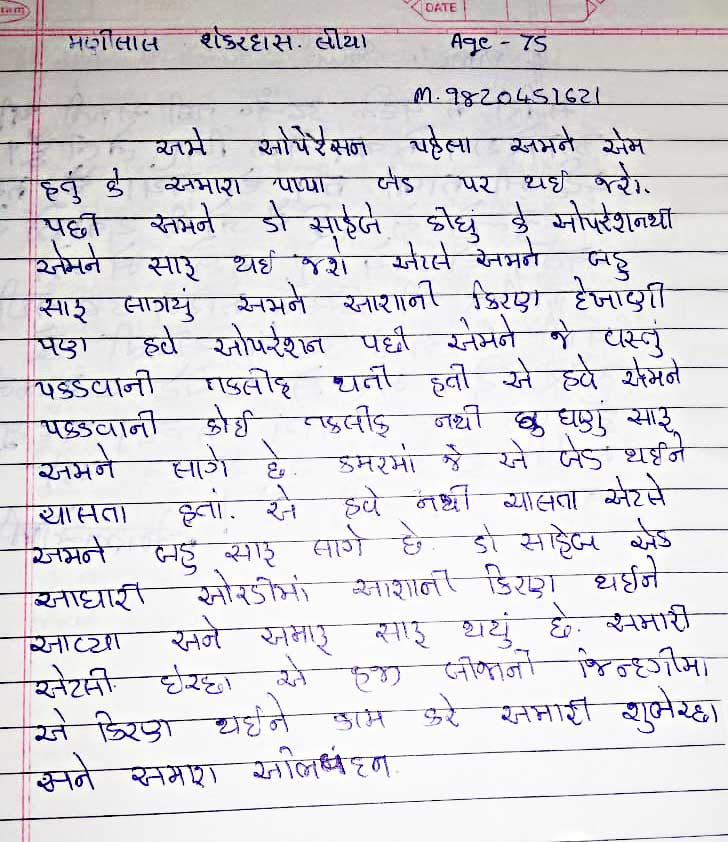 DATE
મણીલાલ શંકરદાસ. લીયા Age - 75
M. 9820451621
અમે ઓપેરેસન પહેલા અમને એમ
હતું કે અમારા પાપા બેડ પર થઈ જશે.
પછી અમને ડો સાહેબે કીધું કે ઓપરેશનથી
એમને સારૂ થઈ જશે એટલે અમને બહુ
સારૂ લાગયું અમને આશાની કિરણ દેખાણી
પણ હવે ઓપરેશન પછી એમને જે વસ્તું
પકડવાની તકલીફ થતી હતી એ હવે એમને
પકડવાની કોઈ તકલીફ નથી ઘણું સારૂ
અમને લાગે છે. કમરમાં જે એ બેડ થઈને
ચાલતા હતાં. એ હવે નથી ચાલતા એટલે
અમને બહું સારૂ લાગે છે. ડો સાહેબ એક
આધારી ઓરડીમાં આશાની કિરણ થઈને
આવ્યા અને અમારૂ સારૂ થયું છે. અમારી
એટલી ઈચ્છા એ હજી બીજાની જિન્દગીમા
એ કિરણ થઈને કામ કરે અમારી શુભેચ્છા
અને અમારા અભિનંદન.